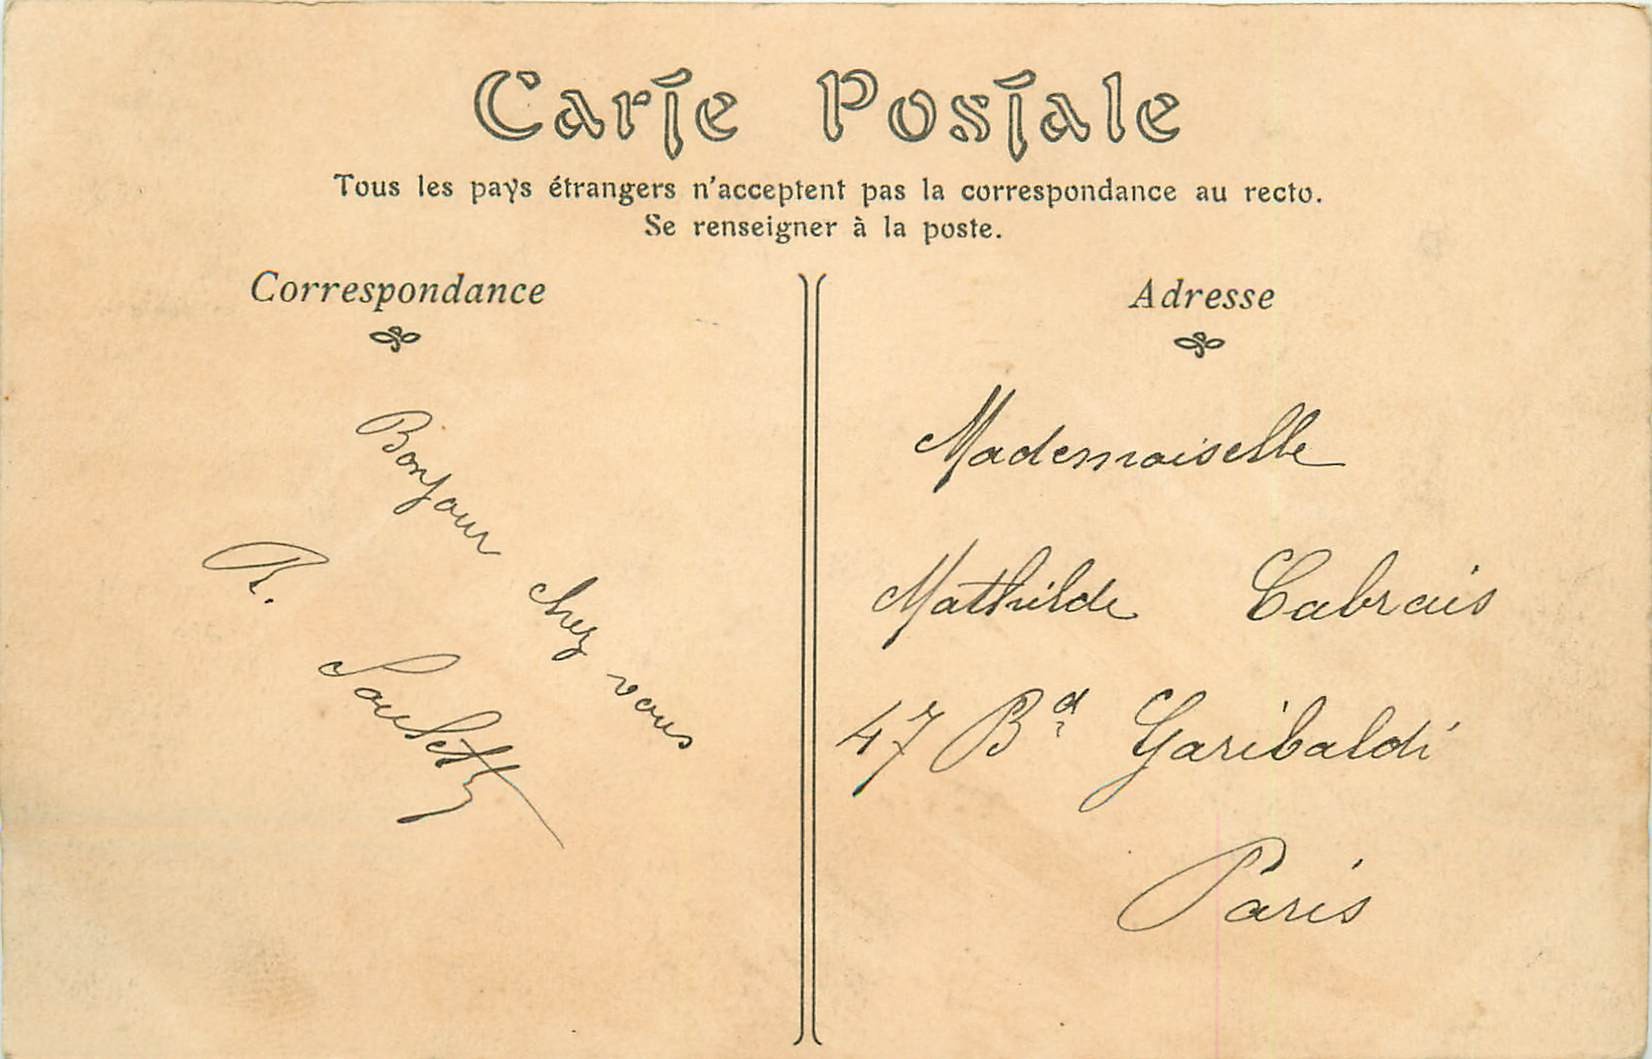 Carte Postale
Tous les pays étrangers n'acceptent pas la correspondance au recto.
Se renseigner à la poste.
Correspondance
Bonjour chez vous
R.
Adresse
Mademoiselle
Mathilde Cabrais
47 Bd Garibaldi
Paris